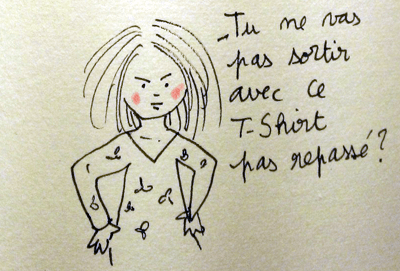 - Tu ne vas
pas sortir
avec ce
T-Shirt
pas repassé?